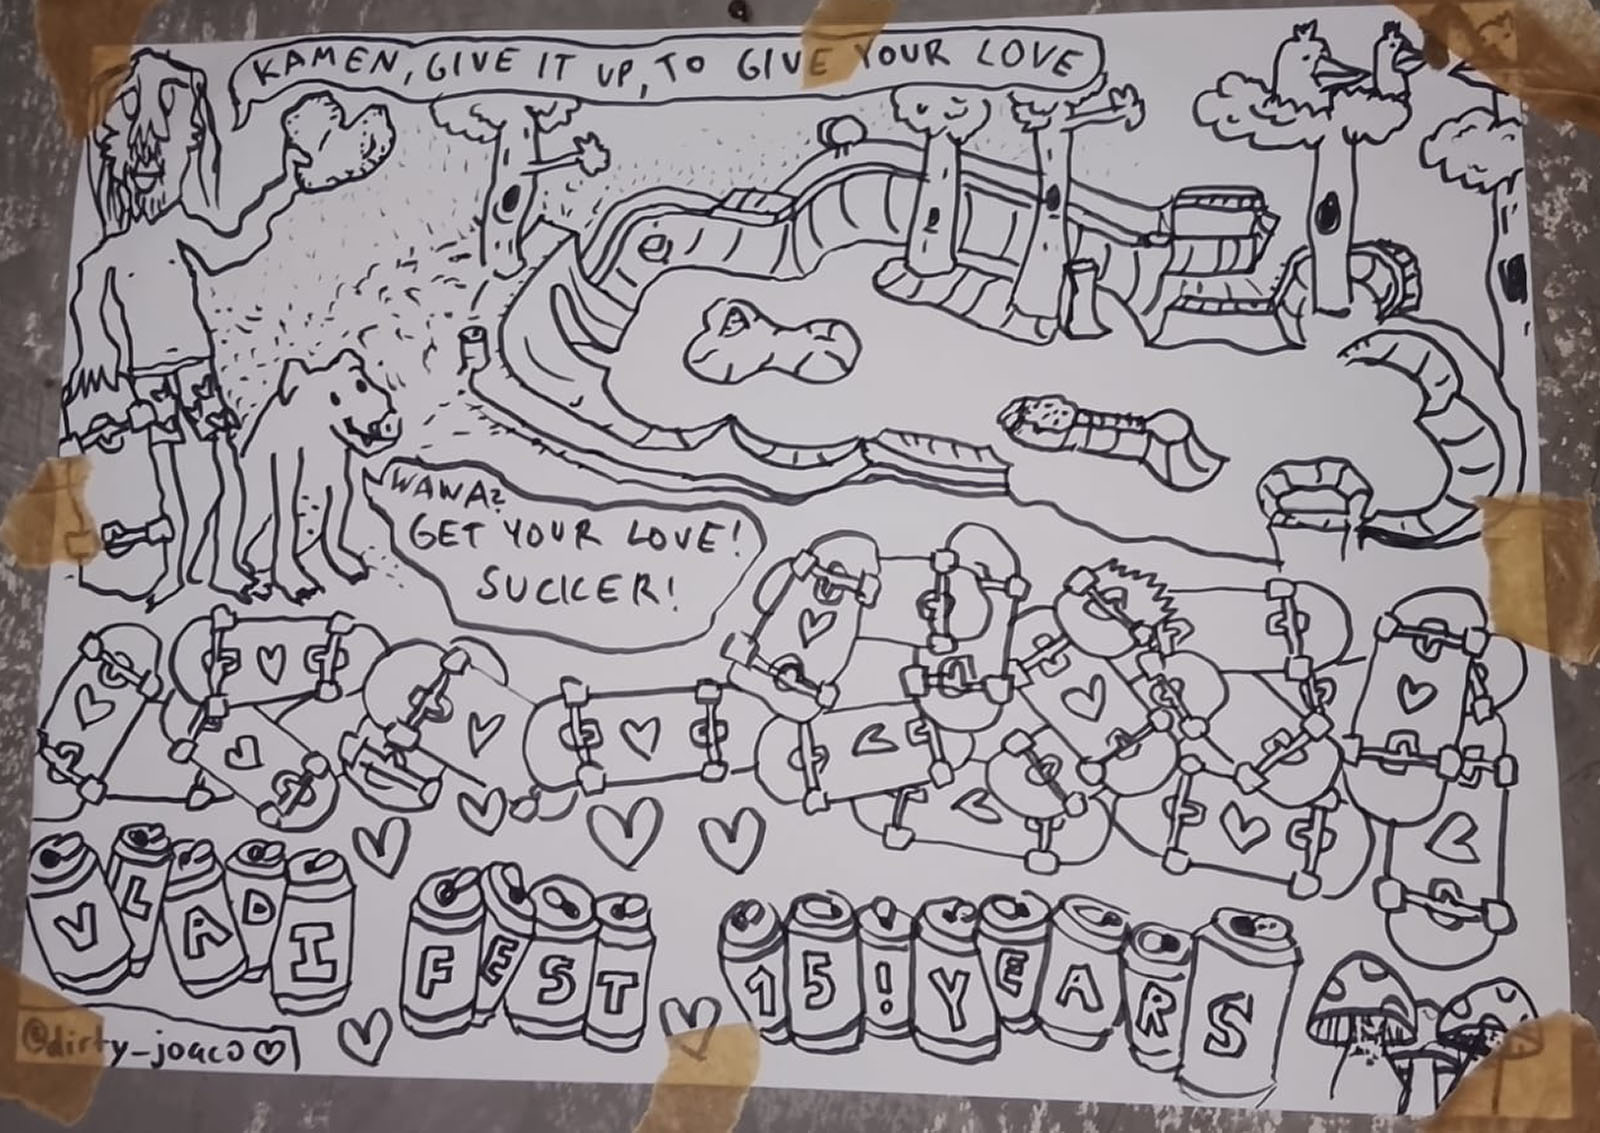 KAMEN, GIVE IT UP, TO GIVE YOUR LOVE
WAWA?
GET YOUR LOVE!
SUCKER!
VLADI FEST 15! YEARS
@dirty_joaco